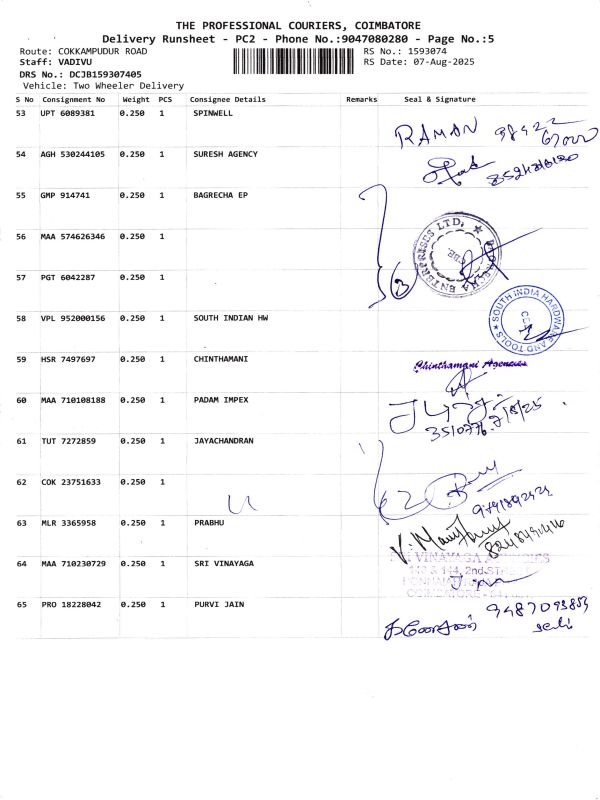 THE PROFESSIONAL COURIERS, COIMBATORE
Delivery Runsheet - PC2 - Phone No.:9047080280 - Page No.:5
Route: COKKAMPUDUR ROAD RS No.: 1593074
Staff: VADIVU RS Date: 07-Aug-2025
DRS No.: DCJB159307405
Vehicle: Two Wheeler Delivery
S No Consignment No Weight PCS Consignee Details Remarks Seal & Signature
53 UPT 6089381 0.250 1 SPINWELL
RAMAN
54 AGH 530244105 0.250 1 SURESH AGENCY
55 GMP 914741 0.250 1 BAGRECHA EP
56 MAA 574626346 0.250 1
ENTERPRISES LTD.
57 PGT 6042287 0.250 1
3
58 VPL 952000156 0.250 1 SOUTH INDIAN HW
SOUTH INDIA HARDWARE AND TOOLS
59 HSR 7497697 0.250 1 CHINTHAMANI
Chinthamani Agencies
60 MAA 710108188 0.250 1 PADAM IMPEX
61 TUT 7272859 0.250 1 JAYACHANDRAN
62 COK 23751633 0.250 1
63 MLR 3365958 0.250 1 PRABHU
64 MAA 710230729 0.250 1 SRI VINAYAGA
VINAYAGA AGENCIES
2nd STREET
65 PRO 18228042 0.250 1 PURVI JAIN
9487093853